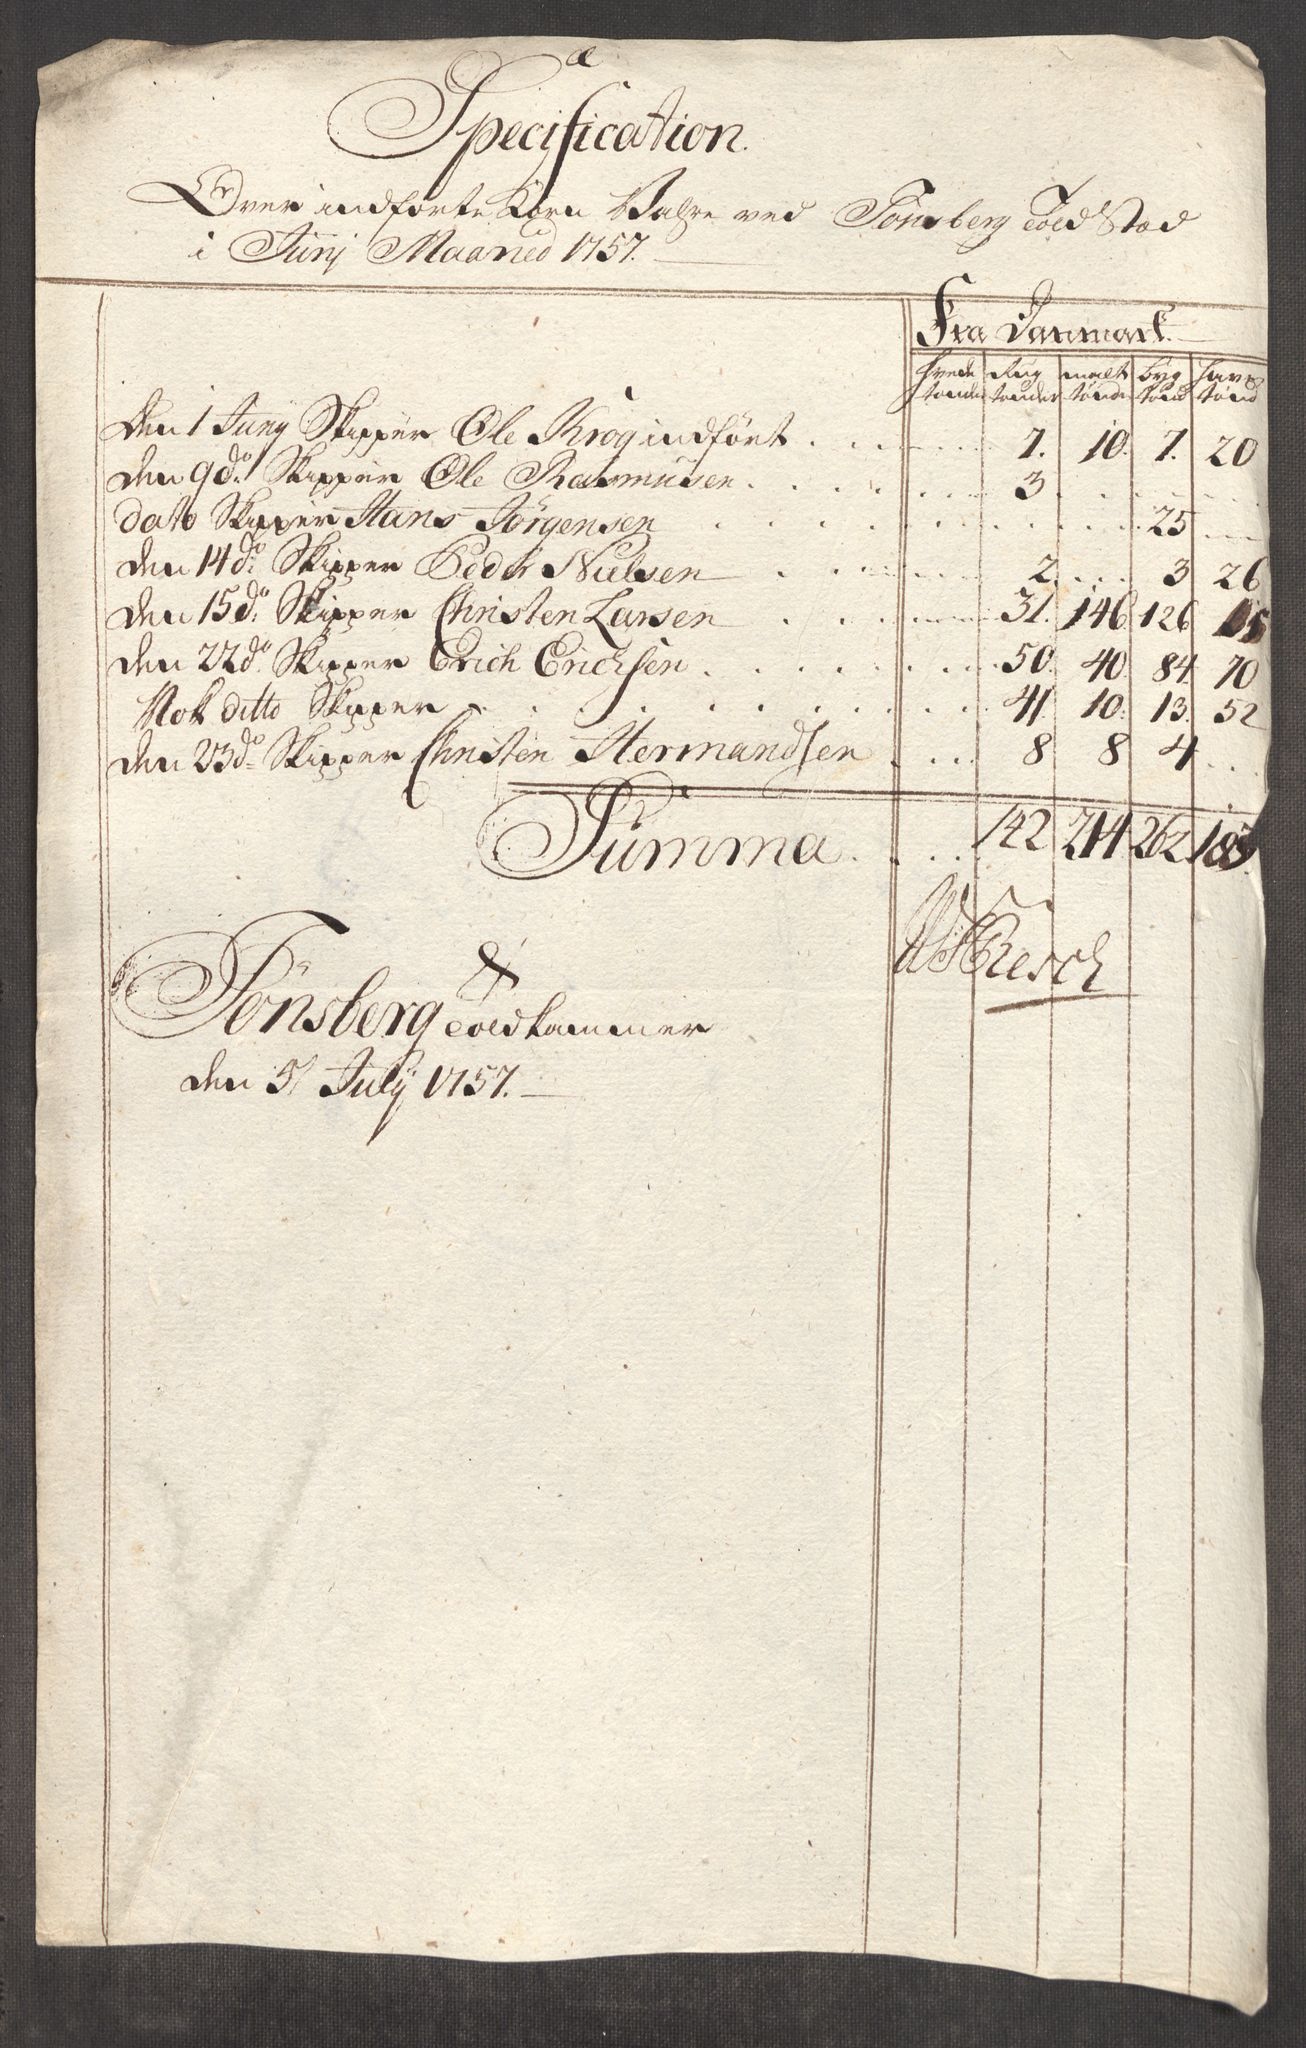 Specification.
Over indførte Korn Vahre ved Tönsberg Told Stæd
i Junj Maaned 1757.
Fra Danmark.
Hvede Rug malt byg Haver
tønder tønder tønder tønd tønd
Den 1 Junÿ Skipper Ole Krog indført . . . 7. 10. 7. 20
Den 9 do. Skipper Ole Rasmusen . . . 3
dato Skipper Hans Jörgensen . . . 25
Den 14 do. Skipper Peder Nielsen . . . 2 . . . 3 26
Den 15 do. Skipper Christen Larsen . . . 31. 146 126
Den 22 do. Skipper Erich Erichsen . . . 50. 40. 84. 70
Nok ditto Skipper . . . 41. 10. 13. 52
Den 23 do. Skipper Christen Hermandsen . . . 8 8 4
Summa . . . 142 214 262
Resch
Tönsberg Toldkammer
den 5 Julÿ 1757.